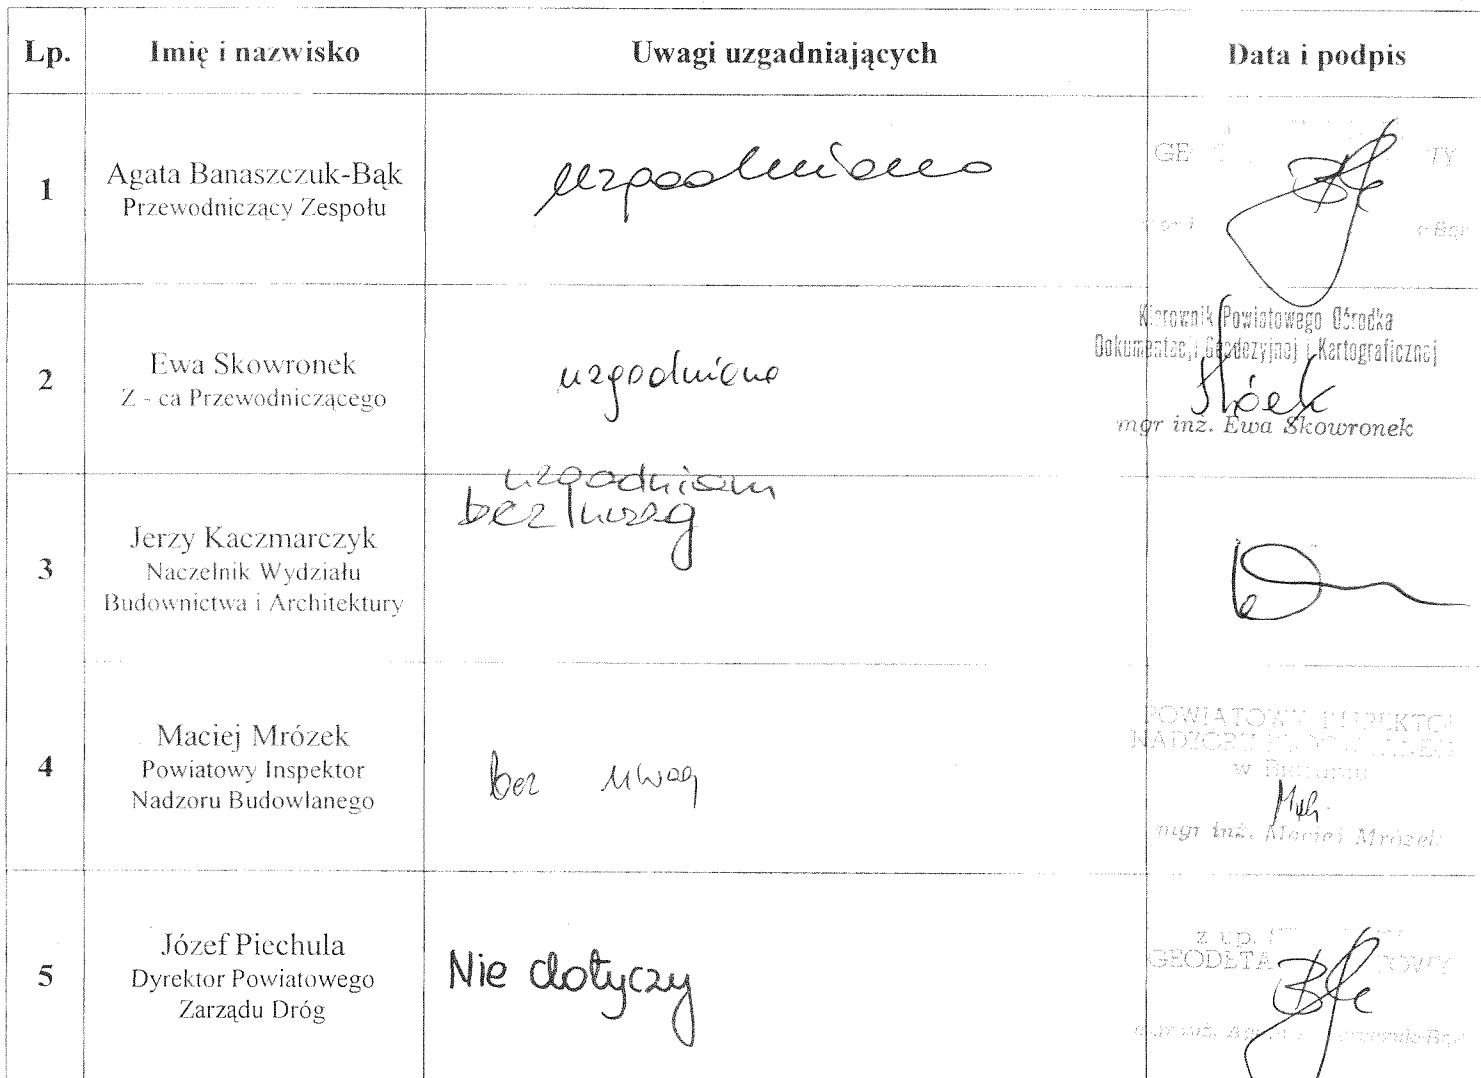 Lp. Imię i nazwisko Uwagi uzgadniających Data i podpis
1
Agata Banaszczuk-Bąk
Przewodniczący Zespołu
uzgodniono
GE TY
2
Ewa Skowronek
Z - ca Przewodniczącego
uzgodniono
Kierownik Powiatowego Ośrodka
Dokumentacji Geodezyjnej i Kartograficznej
mgr inż. Ewa Skowronek
3
Jerzy Kaczmarczyk
Naczelnik Wydziału
Budownictwa i Architektury
uzgadniam
bez uwag
4
Maciej Mrózek
Powiatowy Inspektor
Nadzoru Budowlanego
bez uwag
POWIATOWY INSPEKTOR
NADZORU
w
mgr inż. Maciej Mrózek
5
Józef Piechula
Dyrektor Powiatowego
Zarządu Dróg
Nie dotyczy
z up.
GEODETA
mgr inż.